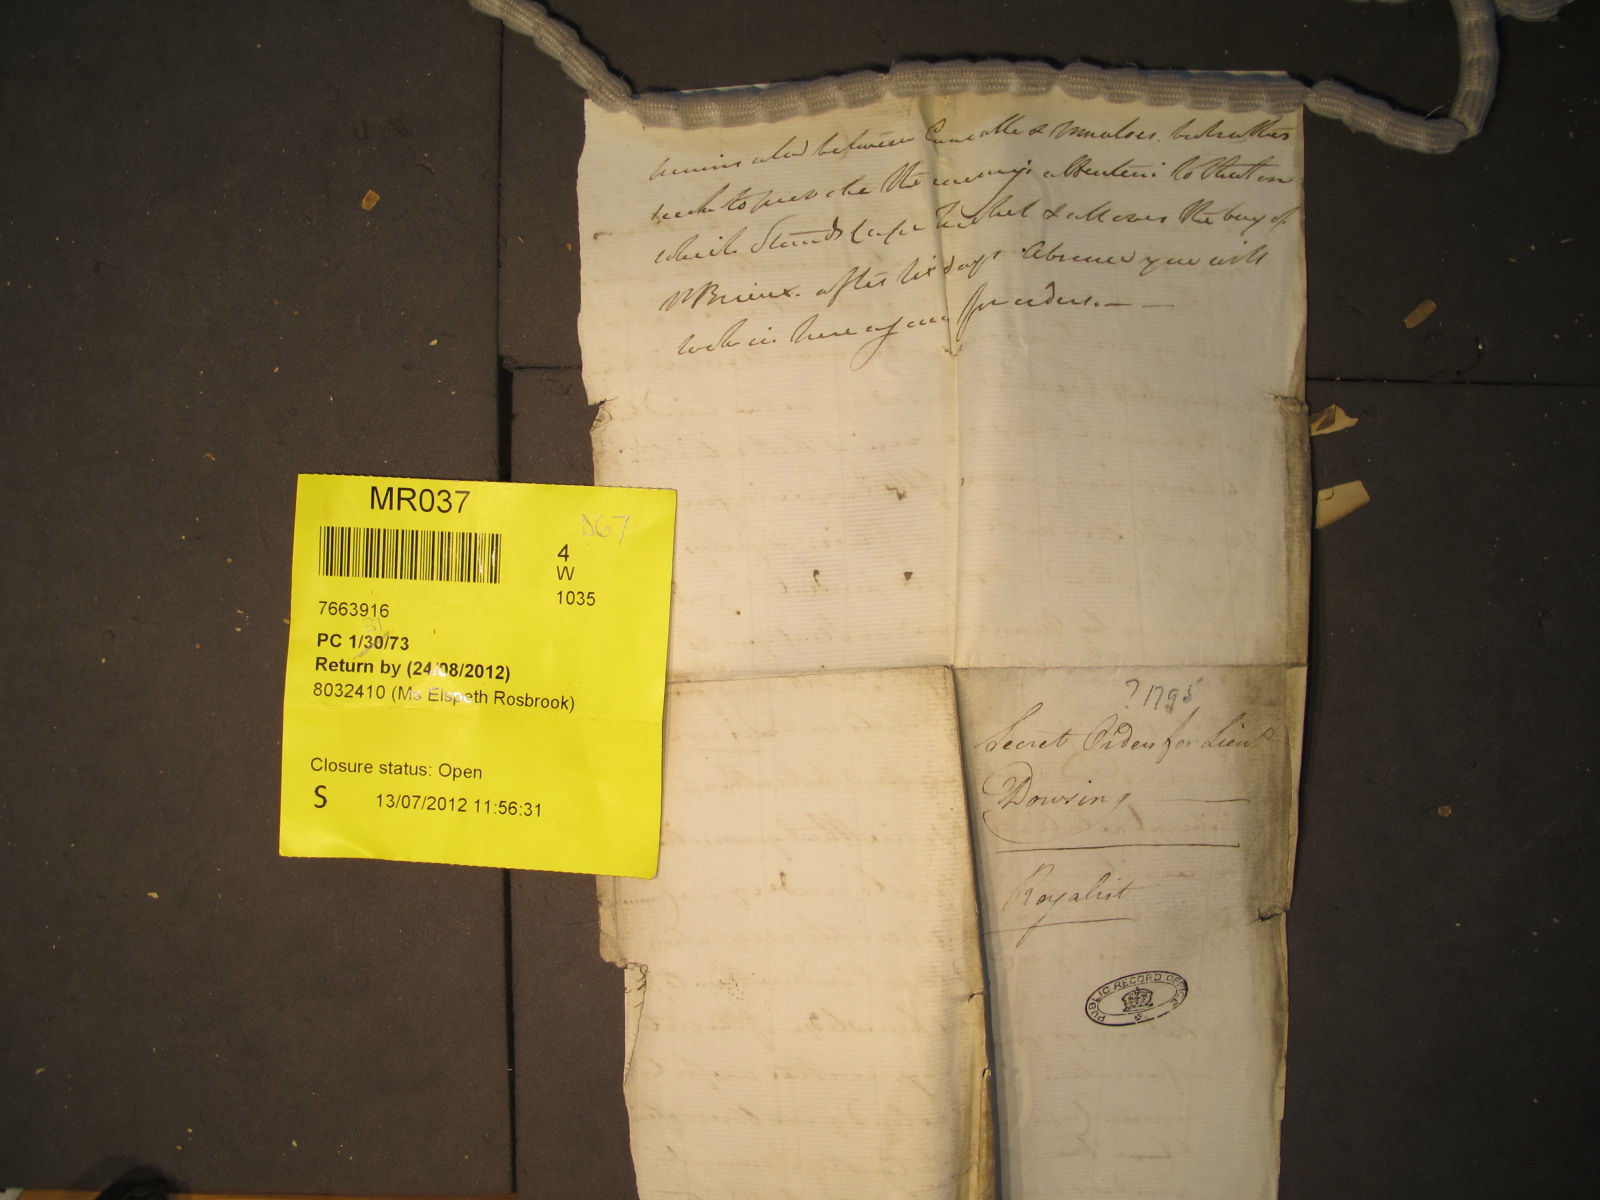 between Cancalle & St Maloes. but rather
seek to provoke the enemy's attention to that on
which Stands Cape Frehel & allover the bay of
St Brieux. after six days absence you will
look in here again for orders. —
MR037
D67
4
W
1035
7663916
PC 1/30/73
Return by (24/08/2012)
8032410 (Ms Elspeth Rosbrook)
Closure status: Open
S 13/07/2012 11:56:31
? 1795
Secret Orders for Lieut
Dowsing
Royalist
PUBLIC RECORD OFFICE